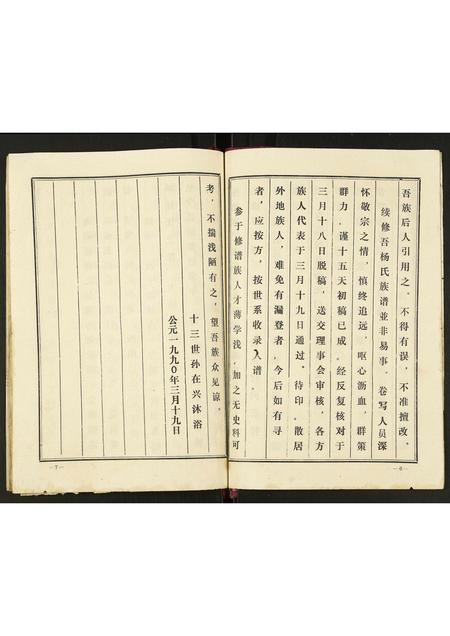 吾族后人引用之。不得有误，不准擅改。
续修吾杨氏族谱並非易事。卷写人员深
怀敬宗之情，慎终追远，呕心沥血，群策
群力。谨十五天初稿已成。经反复核对于
三月十八日脱稿，送交理事会审核，各方
族人代表于三月十九日通过。待印。散居
外地族人，难免有漏登者，今后如有寻
者，应按方，按世系收录入谱。
参于修谱族人才薄学浅，加之无史料可
—6—
考，不揣浅陋有之，望吾族众见谅。
十三世孙在兴沐浴
公元一九九0年三月十九日
—7—